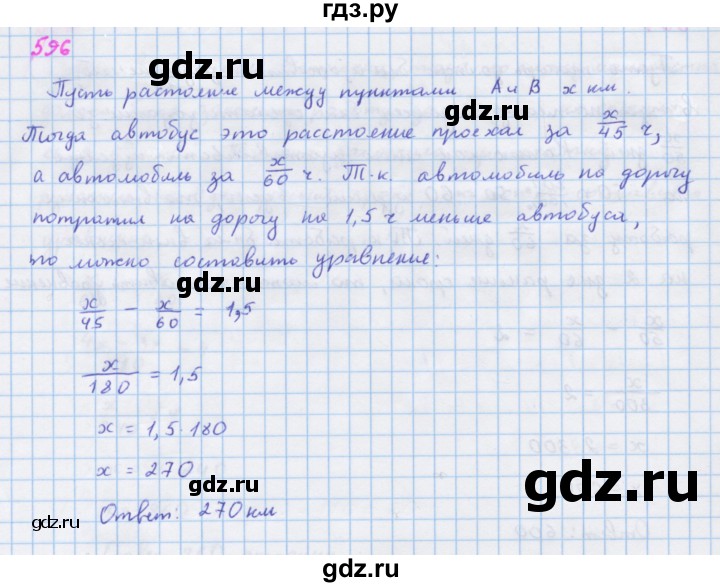 гдз.ру
596
Пусть растояние между пунктами А и В x км.
Тогда автобус это расстояние проехал за x/45 ч,
а автомобиль за x/60 ч. Т.к. автомобиль на дорогу
gdz.ru
потратил на дорогу на 1,5 ч меньше автобуса,
то можно составить уравнение:
gdz.ru
x/45 - x/60 = 1,5
x/180 = 1,5
x = 1,5·180
x = 270
gdz.ru
Ответ: 270 км
gdz.ru
gdz.ru